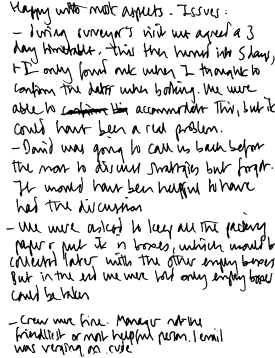 Happy with most aspects. Issues:
- during surveyor's visit we agreed a 3
day timetable. This then turned into 5 days,
+ I only found out when I thought to
confirm the dates when booking. We were
able to accommodate this, but it
could have been a real problem.
- David was going to call us back before
the move to discuss strategies but forgot.
It would have been helpful to have
had the discussion
- We were asked to keep all the packing
paper & put it in boxes, which would be
collected later with the other empty boxes
But in the end we were told only empty boxes
could be taken
- Crew were fine. Manager not the
friendliest or most helpful person. 1 email
was verging on rude